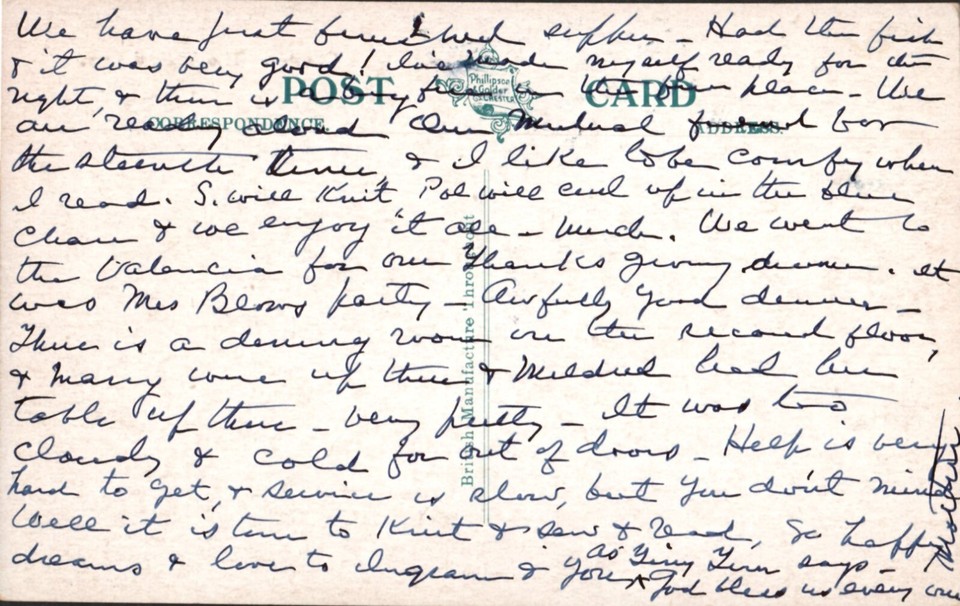 We have just finished supper - Had the fish
& it was very good! I've made myself ready for the
night, & there is a big fire in the fire place - We
are reading aloud Our Mutual friend for
the eleventh time, & I like to be comfy when
I read. S. will Knit, Pol will curl up in the blue
chair & we enjoy it all - much. We went to
the Valencia for our Thanks giving dinner. It
was Mrs Blows party - Awfully good dinner -
There is a dining room on the second floor,
& many were up there & Mildred had her
table up there - very pretty - It was too
cloudy & cold for out of doors - Help is very
hard to get, & service is slow, but you don't mind
Well it is time to Knit & sew & read, So happy
dreams & love to Ingram & you
as Tiny Tim says -
God bless us every one
Mother
POST CARD
Phillipson & Golder CHESTER
CORRESPONDENCE
ADDRESS.
British Manufacture Throughout